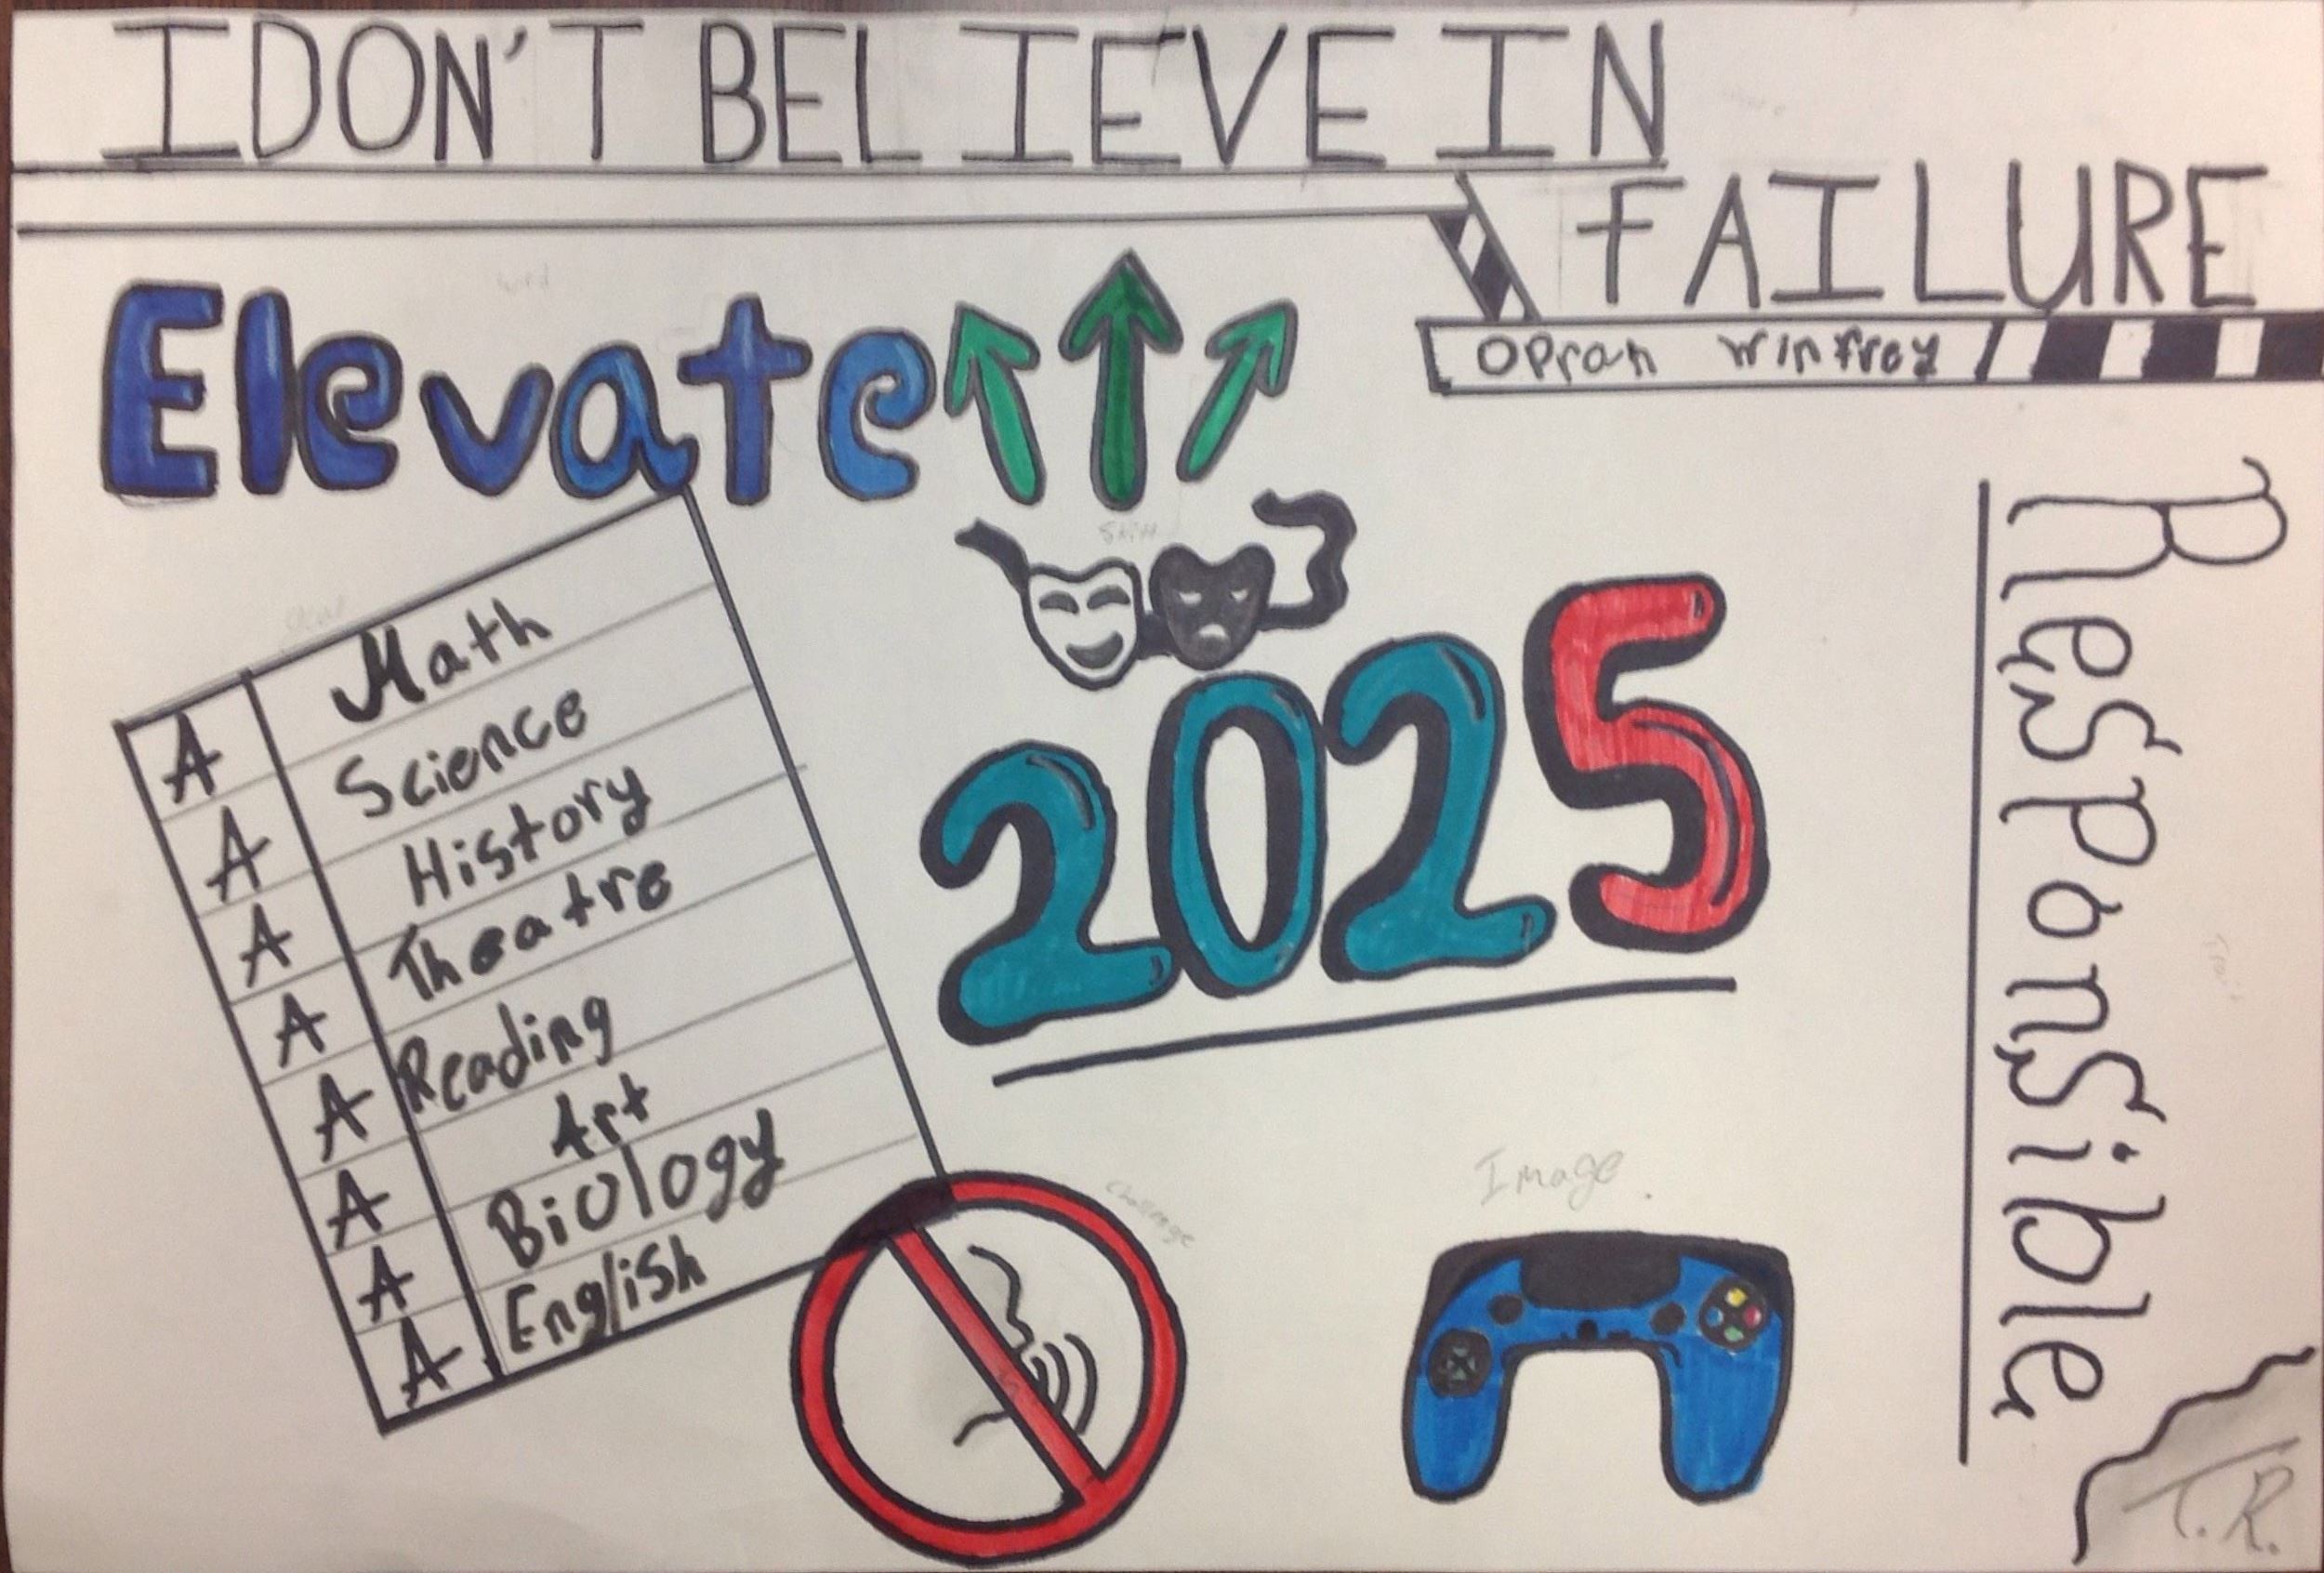 I DON'T BELIEVE IN
FAILURE
Oprah Winfrey
Elevate
A Math
A Science
A History
A Theatre
A Reading
A Art
A Biology
A English
Skill
2025
Challenge
Image
Responsible
Trait
T.R.